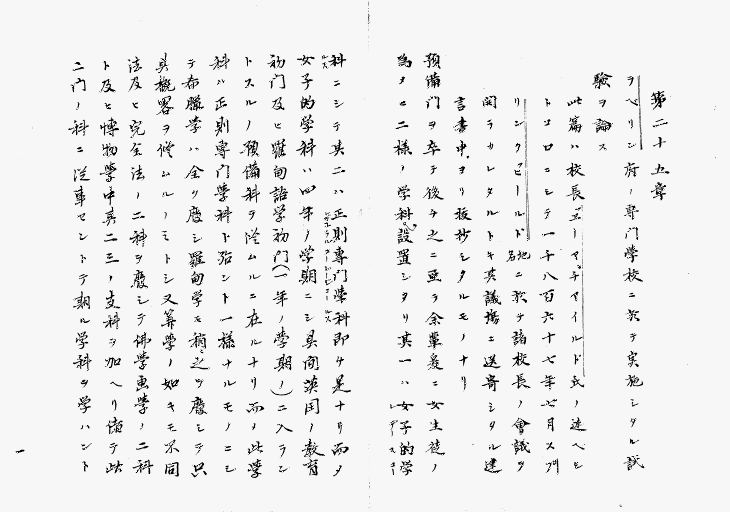 第二十五章
ヲベリン府ノ専門学校ニ於テ実施シタル試
験ヲ論ス
此篇ハ校長ゼー、エチ、フエアマイルド氏ノ述ベシ
トコロニシテ一千八百六十七年七月スプ
リングヒールド地名ニ於テ諸校長ノ会議ヲ
開ラカレタルトキ其議場ニ送寄シタル建
言書中ヨリ抜抄シタルモノナリ
預備門ヲ卒テ後チ之ニ亜ラ余輩爰ニ女生徒ノ
為メニ二様ノ学科設置シタリ其一ハ女子的学
科ニシテ其二ハ正則専門学科即チ是ナリ而メ
女子的学科ハ四年ノ学期ニシ其間英国ノ教育
初門及ヒ羅甸語学初門(一年ノ学期ノ)ニ入ラン
トスルノ預備科ヲ修ムルニ在ルナリ而メ此学
科ハ正則専門学科ト殆ント一様ナルモノニシ
テ希臘学ハ全ク廃シ羅甸学モ稍之ヲ廃シテ只
其概畧ヲ修ムルノミトシ又算学ノ如キモ不同
法及ヒ完全法ノ二科ヲ廃シテ佛学画学ノ二科
ト及ヒ博物学中其二三ノ支科ヲ加ヘリ偖テ此
二門ノ科ニ従事セントテ期ル学科ヲ学ハント